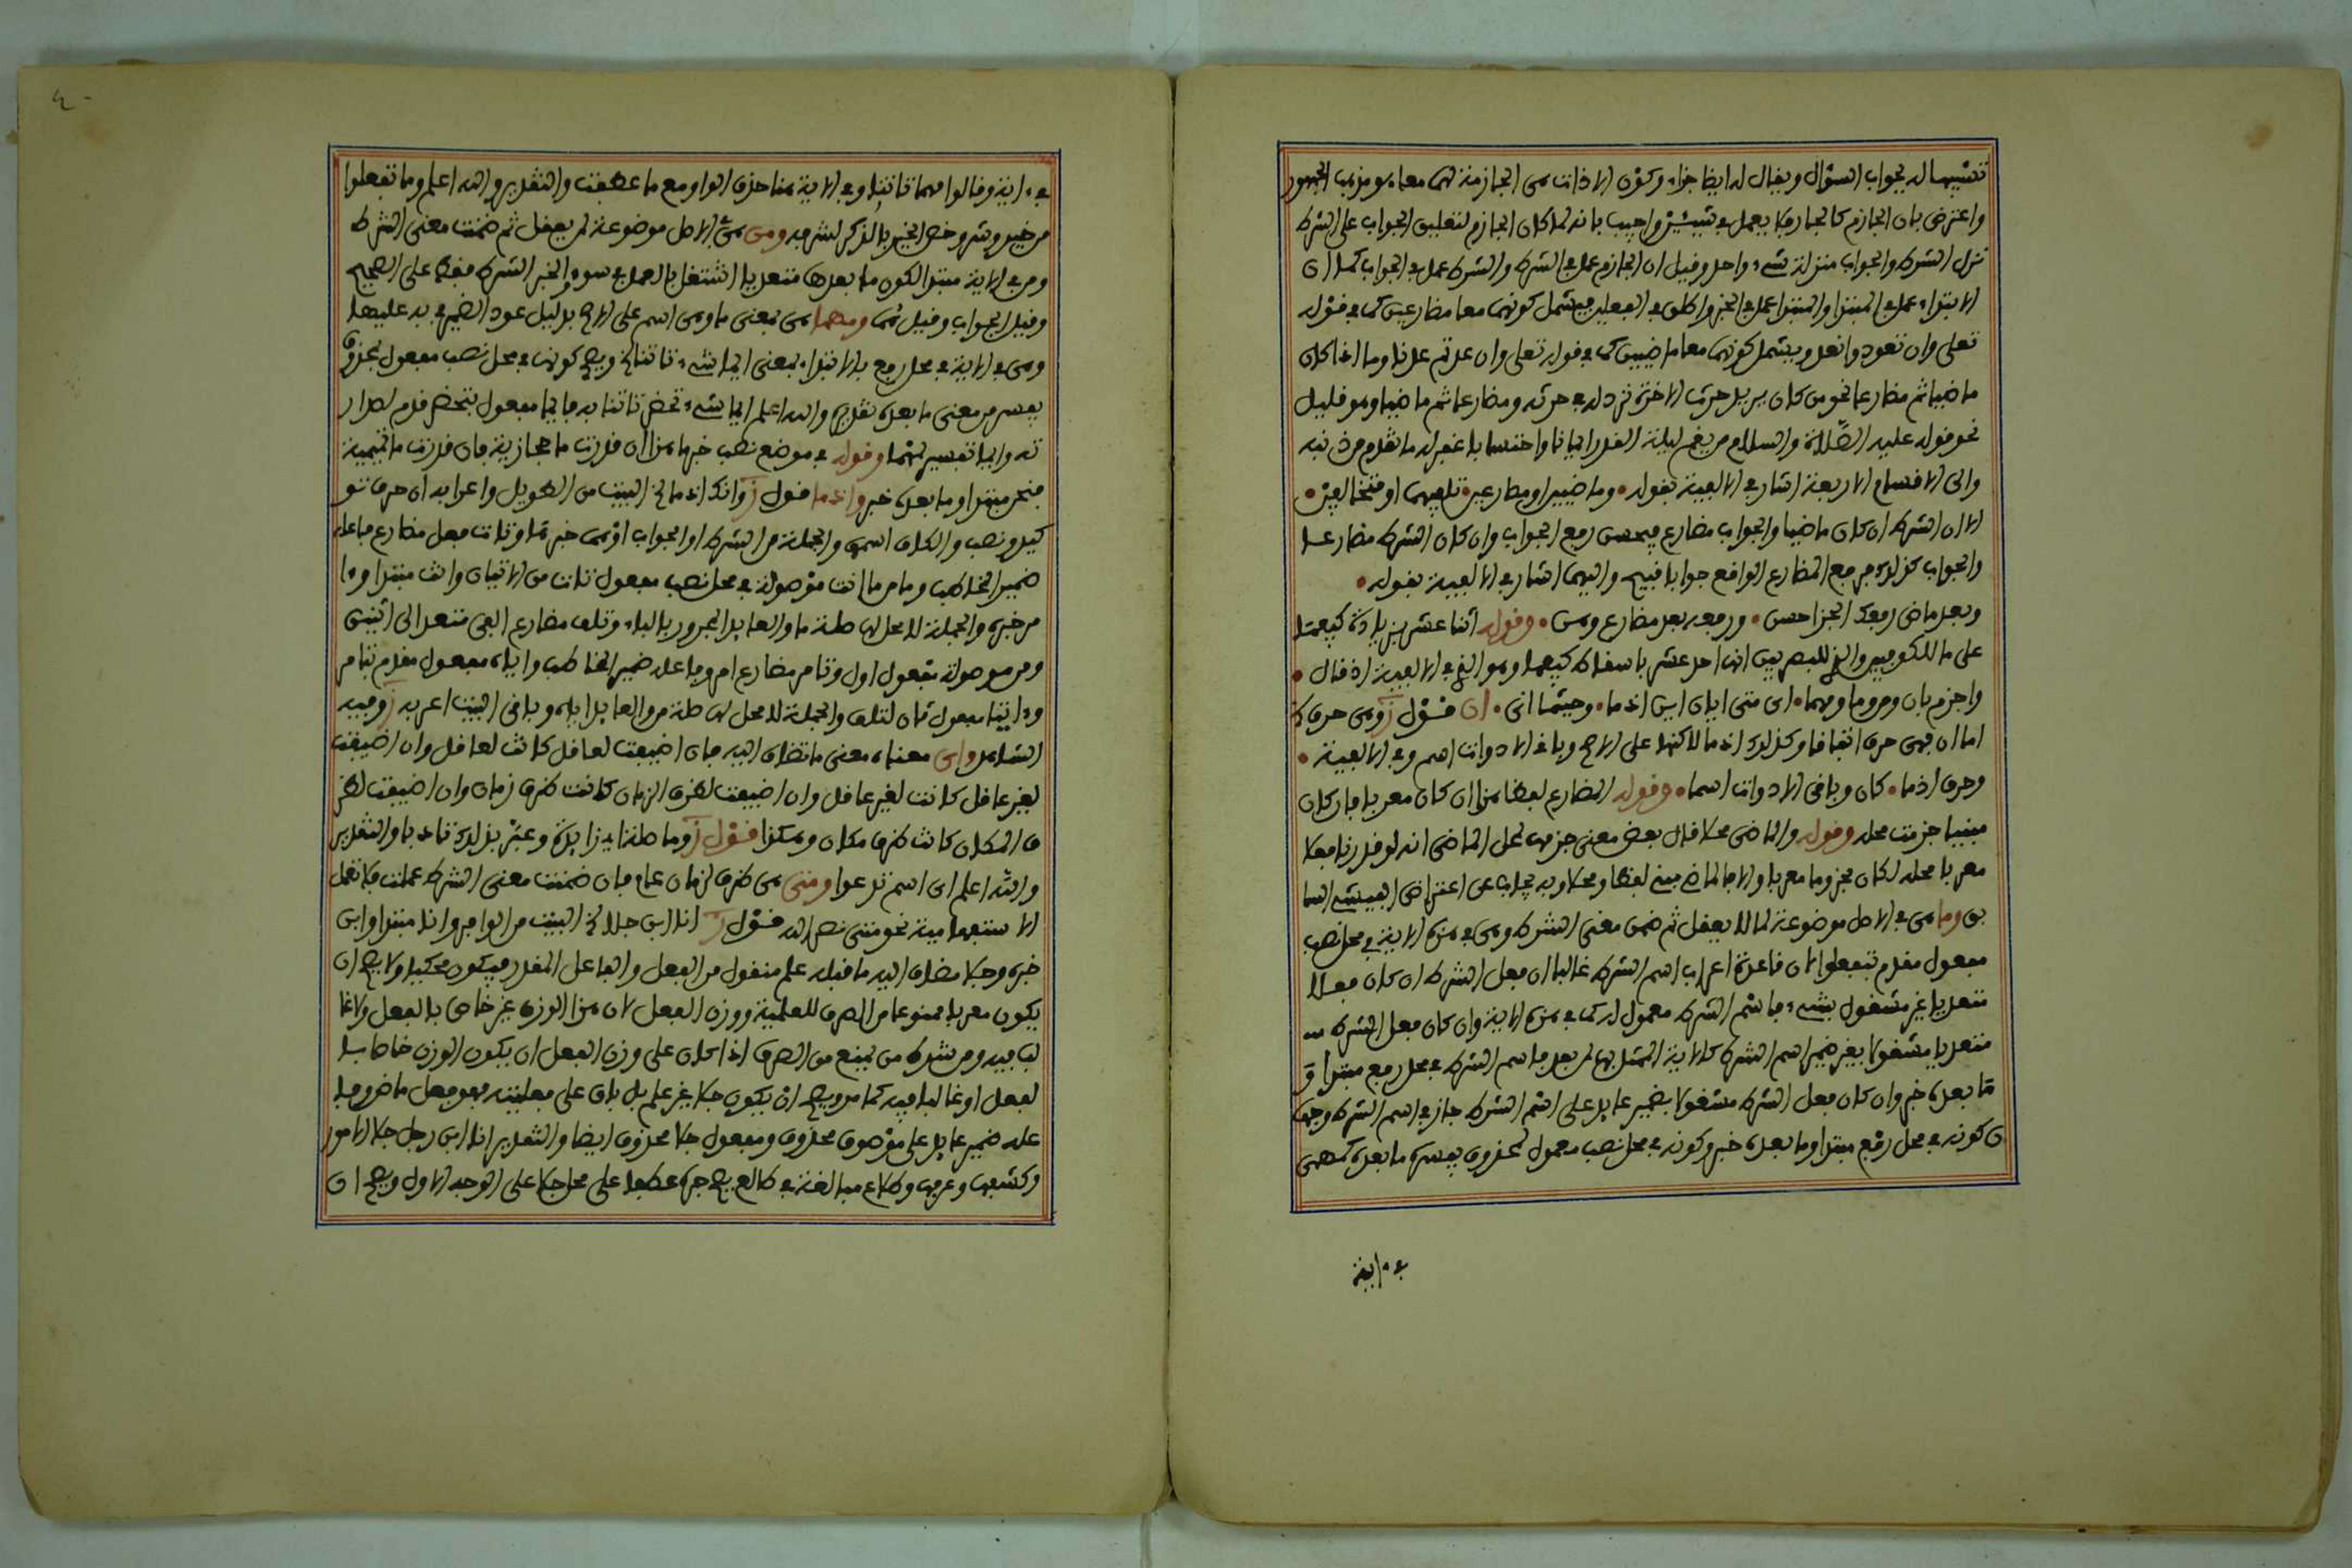 تشبيها له بجواب السؤال ويقال له ايضا جزاء وكون الاذات هي الجازمة لهما معا هو مذهب الجمهور
واعترض بان الجازم كالجار فلا يعمل في شيئين واجيب بانه لما كان الجازم لتعليق الجواب على الشرط
نزل الشرط والجواب منزلة شيء واحد وقيل ان الجازم عمل في الشرط والشرط عمل في الجواب كما ان
الابتداء عمل في المبتدا والمبتدا عمل في الخبر واطلق في الفعلين فيشمل كونهما معا مضارعين كما في قوله
تعلى وان تعودوا نعد ويشمل كونهما معا ماضيين كما في قوله تعلى وان عدتم عدنا وما اذا كان
ماضيا ثم مضارعا نحو من كان يريد حرث الاخرة نزد له في حرثه ومضارعا ثم ماضيا وهو قليل
نحو قوله عليه الصّلاة والسلام من يقم ليلة القدر ايمانا واحتسابا غفر له ما تقدم من ذنبه
والى الاقسام الاربعة اشار في الالفية بقوله • وماضيين او مضارعين • تلفيهما او متخالفين •
الا ان الشرط ان كان ماضيا والجواب مضارع فيحسن رفع الجواب وان كان الشرط مضارعا
والجواب كذلك فرفع المضارع الواقع جوابا قبيح واليهما اشار في الالفية بقوله •
وبعد ماض رفعك الجزا حسن • ورفعه بعد مضارع وهن • وقوله اثنا عشر بزيادة كيفما
على ما للكوفيين والذي للبصريين انها احد عشر باسقاط كيفما وهو الذي في الالفية اذ قال •
واجزم بان ومن وما ومهما • اي متى ايان اين اذما • وحيثما انى • ان فقول ز وهي حرف
اما ان فهي حرف اتفاقا وكذلك اذما لاكنها على الاصح وباقي الادوات اسم وفي الالفية •
وحرف اذما • كان وباقي الادوات اسما • وقوله المضارع لفظا هذا ان كان معربا فان كان
مبنيا جزمت محله وقوله والماضي محلا قال بعض معنى جزمها لمحل الماضي انه لو قدرنا فعلا
معربا محله لكان مجزوما معربا والا فالماضي مبني لفظا ومحلا وبه يجاب عن اعتراض البيشي السا
بق وما هي في الاصل موضوعة لما لا يعقل ثم ضمن معنى الشرط وهي في هذه الاية في محل نصب
مفعول مقدم بتفعلوا لان قاعدة اعراب اسم الشرط غالبا ان فعل الشرط ان كان فعلا
متعديا غير مشغول بشيء فاسم الشرط معمول له كما في هذه الاية وان كان فعل الشرط
متعديا مشغولا بغير ضمير اسم الشرط كالاية الممثل بها لم بعد فاسم الشرط في محل رفع مبتدا و
ما بعده خبر وان كان فعل الشرط مشغولا بضمير عايد على اسم الشرط جاز في اسم الشرط وجها
ن كونه في محل رفع مبتدا وما بعده خبر وكونه في محل نصب معمول لمحذوف يفسره ما بعده كمهمى
في ءاية
في ءاية وقالوا مهما تاتنا وفي الاية هنا حذف الواو مع ما عطفت والتقدير والله اعلم وما تفعلوا
من خير وشر وخص الخير بالذكر لشرفه ومن هي في الاصل موضوعة لمن يعقل ثم ضمنت معنى الشرط
ومن في الاية مبتدا لكون ما بعدها متعديا اشتغل بالعمل في سوء والخبر الشرط فقط على الصحيح
وقيل الجواب وقيل هما ومهما هي بمعنى ما وهي اسم على الاصح بدليل عود الضمير في به عليها
وهي في الاية في محل رفع بالابتداء بمعنى ايما شيء تاتنا الخ ويصح كونها في محل نصب مفعول لمحذوف
يفسره معنى ما بعده تقديره والله اعلم ايما شيء تحضر تاتنا به فايما مفعول بتحضر قدم لصدار
ته وايما تفسير لمهما وقوله في موضع نصب خبرها هذا ان قدرت ما حجازية فان قدرت ما تميمية
فنحن مبتدا وما بعده خبر واذما فقول ز وانك اذما الخ البيت من الطويل واعرابه ان حرف تو
كيد ونصب والكاف اسمها والجملة من الشرط او الجواب او هما خبرها وتات فعل مضارع فاعله
ضمير المخاطب وما من ما انت موصولة في محل نصب مفعول تات من الاتيان وانت مبتدا وءا
مر خبره والجملة لا محل لها صلة ما والعايد المجرور بالباء وتلف مضارع الفى متعد الى اثنين
ومن موصولة مفعول اول وتامر مضارع امر وفاعله ضمير المخاطب واياه مفعول مقدم بتامر
وءاتيا مفعول ثان لتلف والجملة لا محل لها صلة من والعايد اياه وباقي البيت اعربه ز وفيه
الشاهد واي معناه معنى ما تضاف اليه فان اضيفت لعاقل كانت لعاقل وان اضيفت
لغير عاقل كانت لغير عاقل وان اضيفت لظرف الزمان كانت ظرف زمان وان اضيفت لظر
ف المكان كانت ظرف مكان وهكذا فقول ز وما صلة اي زايدة وعبر بذلك تادبا والتقدير
والله اعلم اي اسم تدعوا ومتى هي ظرف لزمان عام فان ضمنت معنى الشرط عملت فلا تعمل
الاستفهامية نحو متى نصر الله فقول ز انا ابن جلا الخ البيت من الوافر وانا مبتدا وابن
خبره وجلا مضاف اليه ما قبله علم منقول من الفعل والفاعل المقدر فيكون محكيا ولا يصح ان
يكون معربا ممنوعا من الصرف للعلمية ووزن الفعل لان هذا الوزن غير خاص بالفعل ولا غا
لب فيه ومن شرط من يمنع من الصرف اذا كان على وزن الفعل ان يكون الوزن خاصا با
لفعل او غالبا فيه كما مر ويصح ان يكون جلا غير علم بل باق على فعليته فهو فعل ماض وفا
عله ضمير عايد على موصوف محذوف ومفعول جلا محذوف ايضا والتقدير انا ابن رجل جلا الامور
وكشفها وعرفها وطلاع مبالغة في طالع يصح جره عطفا على محل جلا على الوجه الاول ويصح ان